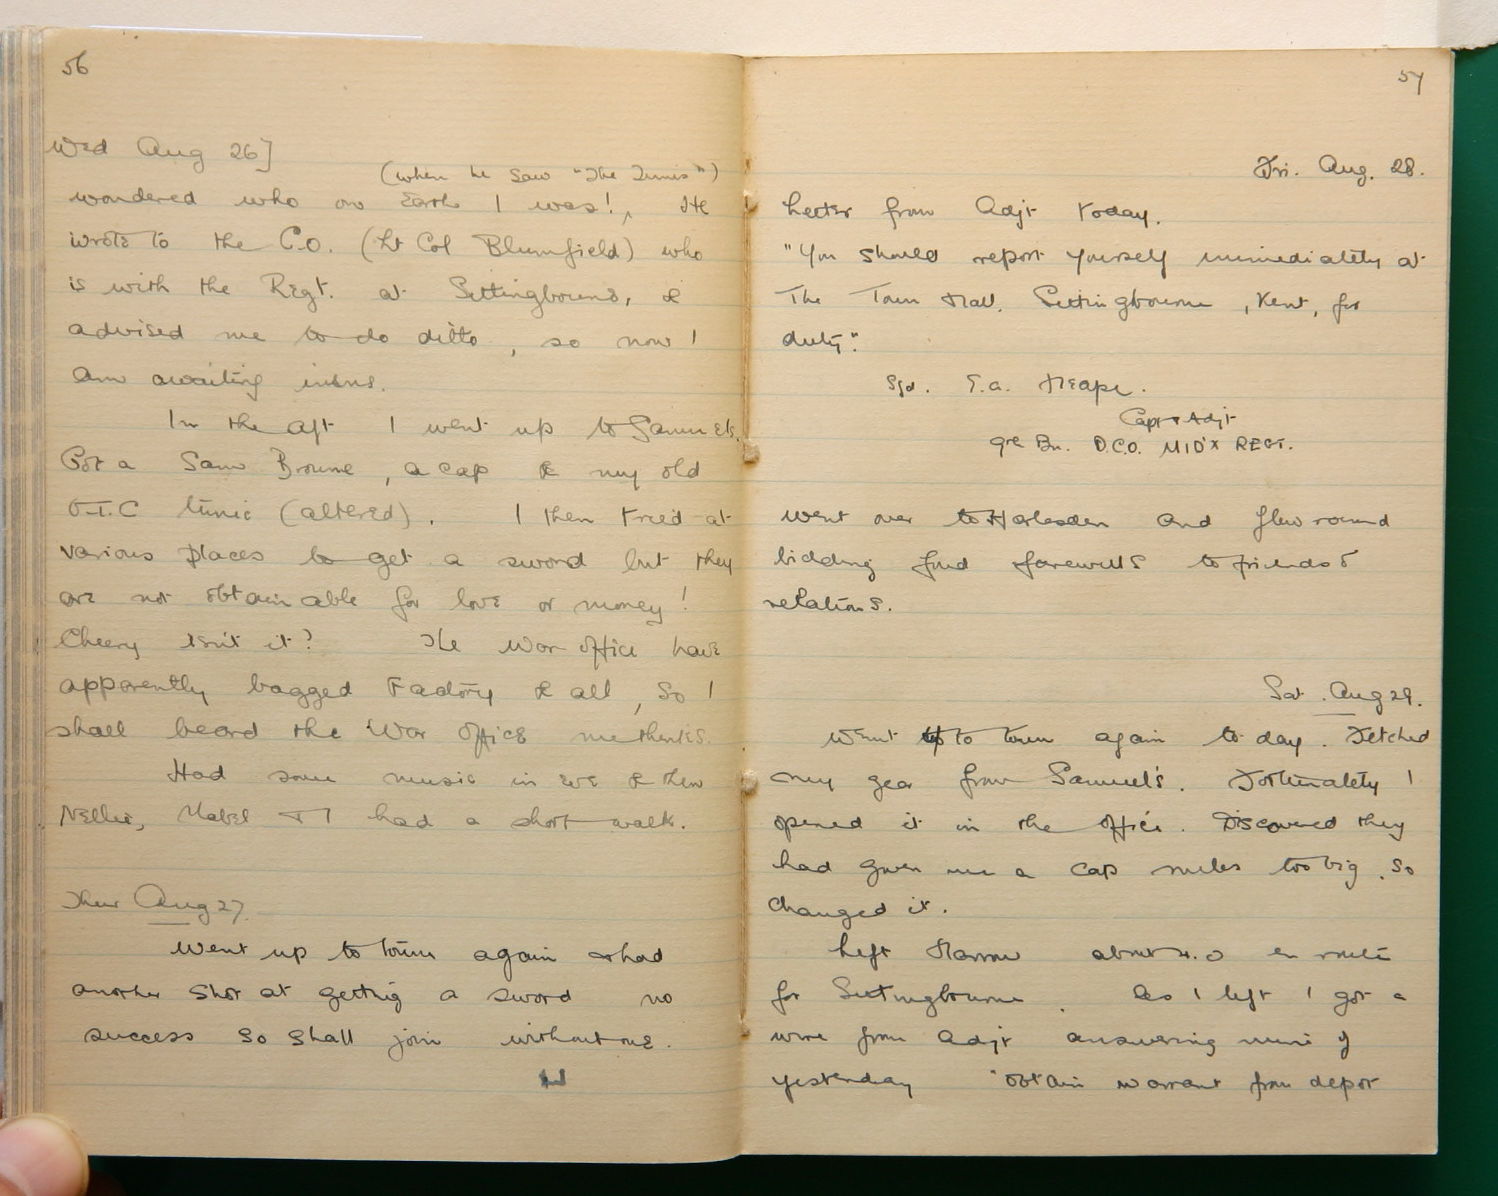 56
Wed Aug 26]
(when he saw "The Times")
wondered who on Earth I was!, He
wrote to the C.O. (Lt Col Blumfield) who
is with the Regt. at Sittingbourne, &
advised me to do ditto, so now I
am awaiting instns.
In the aft I went up to Samuels.
Got a Sam Browne, a cap & my old
O.T.C tunic (altered). I then tried at
various places to get a sword but they
are not obtainable for love or money!
Cheery isn't it? The War Office have
apparently bagged Factory & all, so I
shall beard the War Office methinks.
Had some music in eve & then
Nellie, Mabel & I had a short walk.
Thur Aug 27.
Went up to town again & had
another shot at getting a sword no
success so shall join without one.
57
Fri. Aug. 28.
Letter from Adjt today.
"You should report yourself immediately at
The Town Hall. Sittingbourne, Kent, for
duty."
Sgd. E.a. Heape.
Capt & Adjt
Bn. D.C.O. MID'X REGT.
Went over to Harlesden and flew round
bidding fond farewells to friends &
relations.
Sat. Aug 29.
Went up to town again to day. Fetched
my gear from Samuel's. Fortunately I
opened it in the office. Discovered they
had given me a cap miles too big. So
changed it.
Left Harrow about 4.0 en route
for Sittingbourne. As I left I got a
wire from Adjt answering mine of
yesterday "obtain warrant from depot